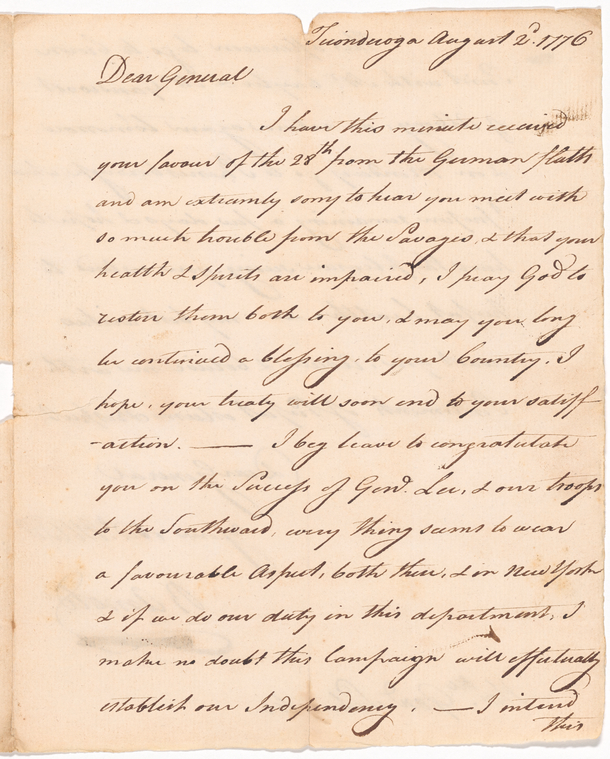 Ticonderoga August 2d. 1776
Dear General
I have this minute received
your favour of the 28th from the German flatts
and am extremly sorry to hear you meet with
so much trouble from the Savages, & that your
health & spirits are impaired, I pray God to
restore them both to you, & may you long
be continued a blessing, to your Country. I
hope, your treaty will soon end to your satisf
-action. — I beg leave to congratulate
you on the Success of Genl. Lee, & our troops
to the Southward, every thing seems to wear
a favourable Aspect, both there, & in New York
& if we do our duty in this department, I
make no doubt this Campaign will effectually
establish our Independency. — I intend
this